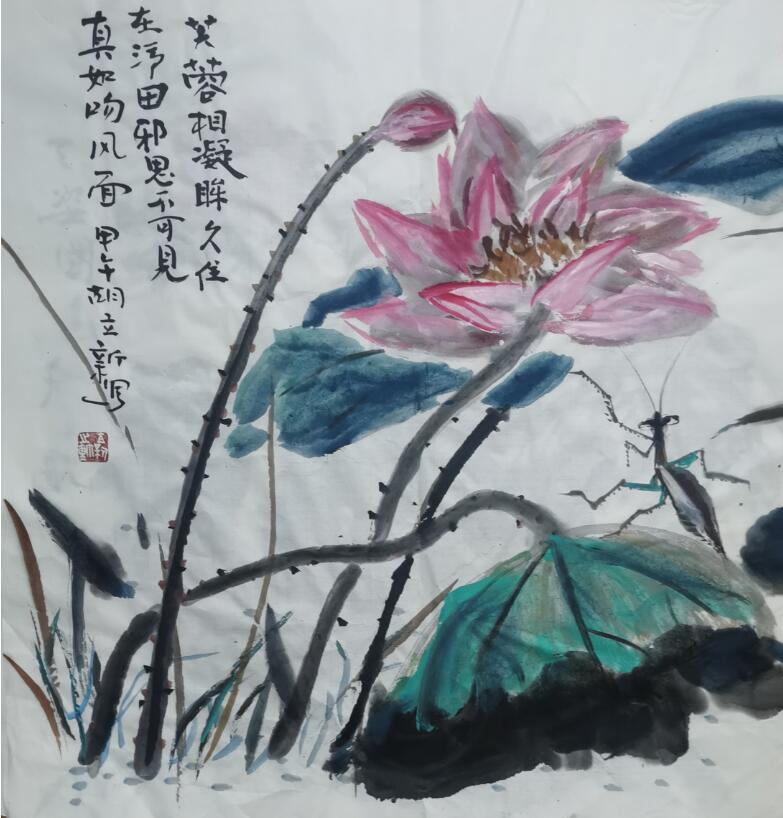 芙蓉相凝眸久住
在浮田邪思不可見
真如吻风面 甲午胡立新写